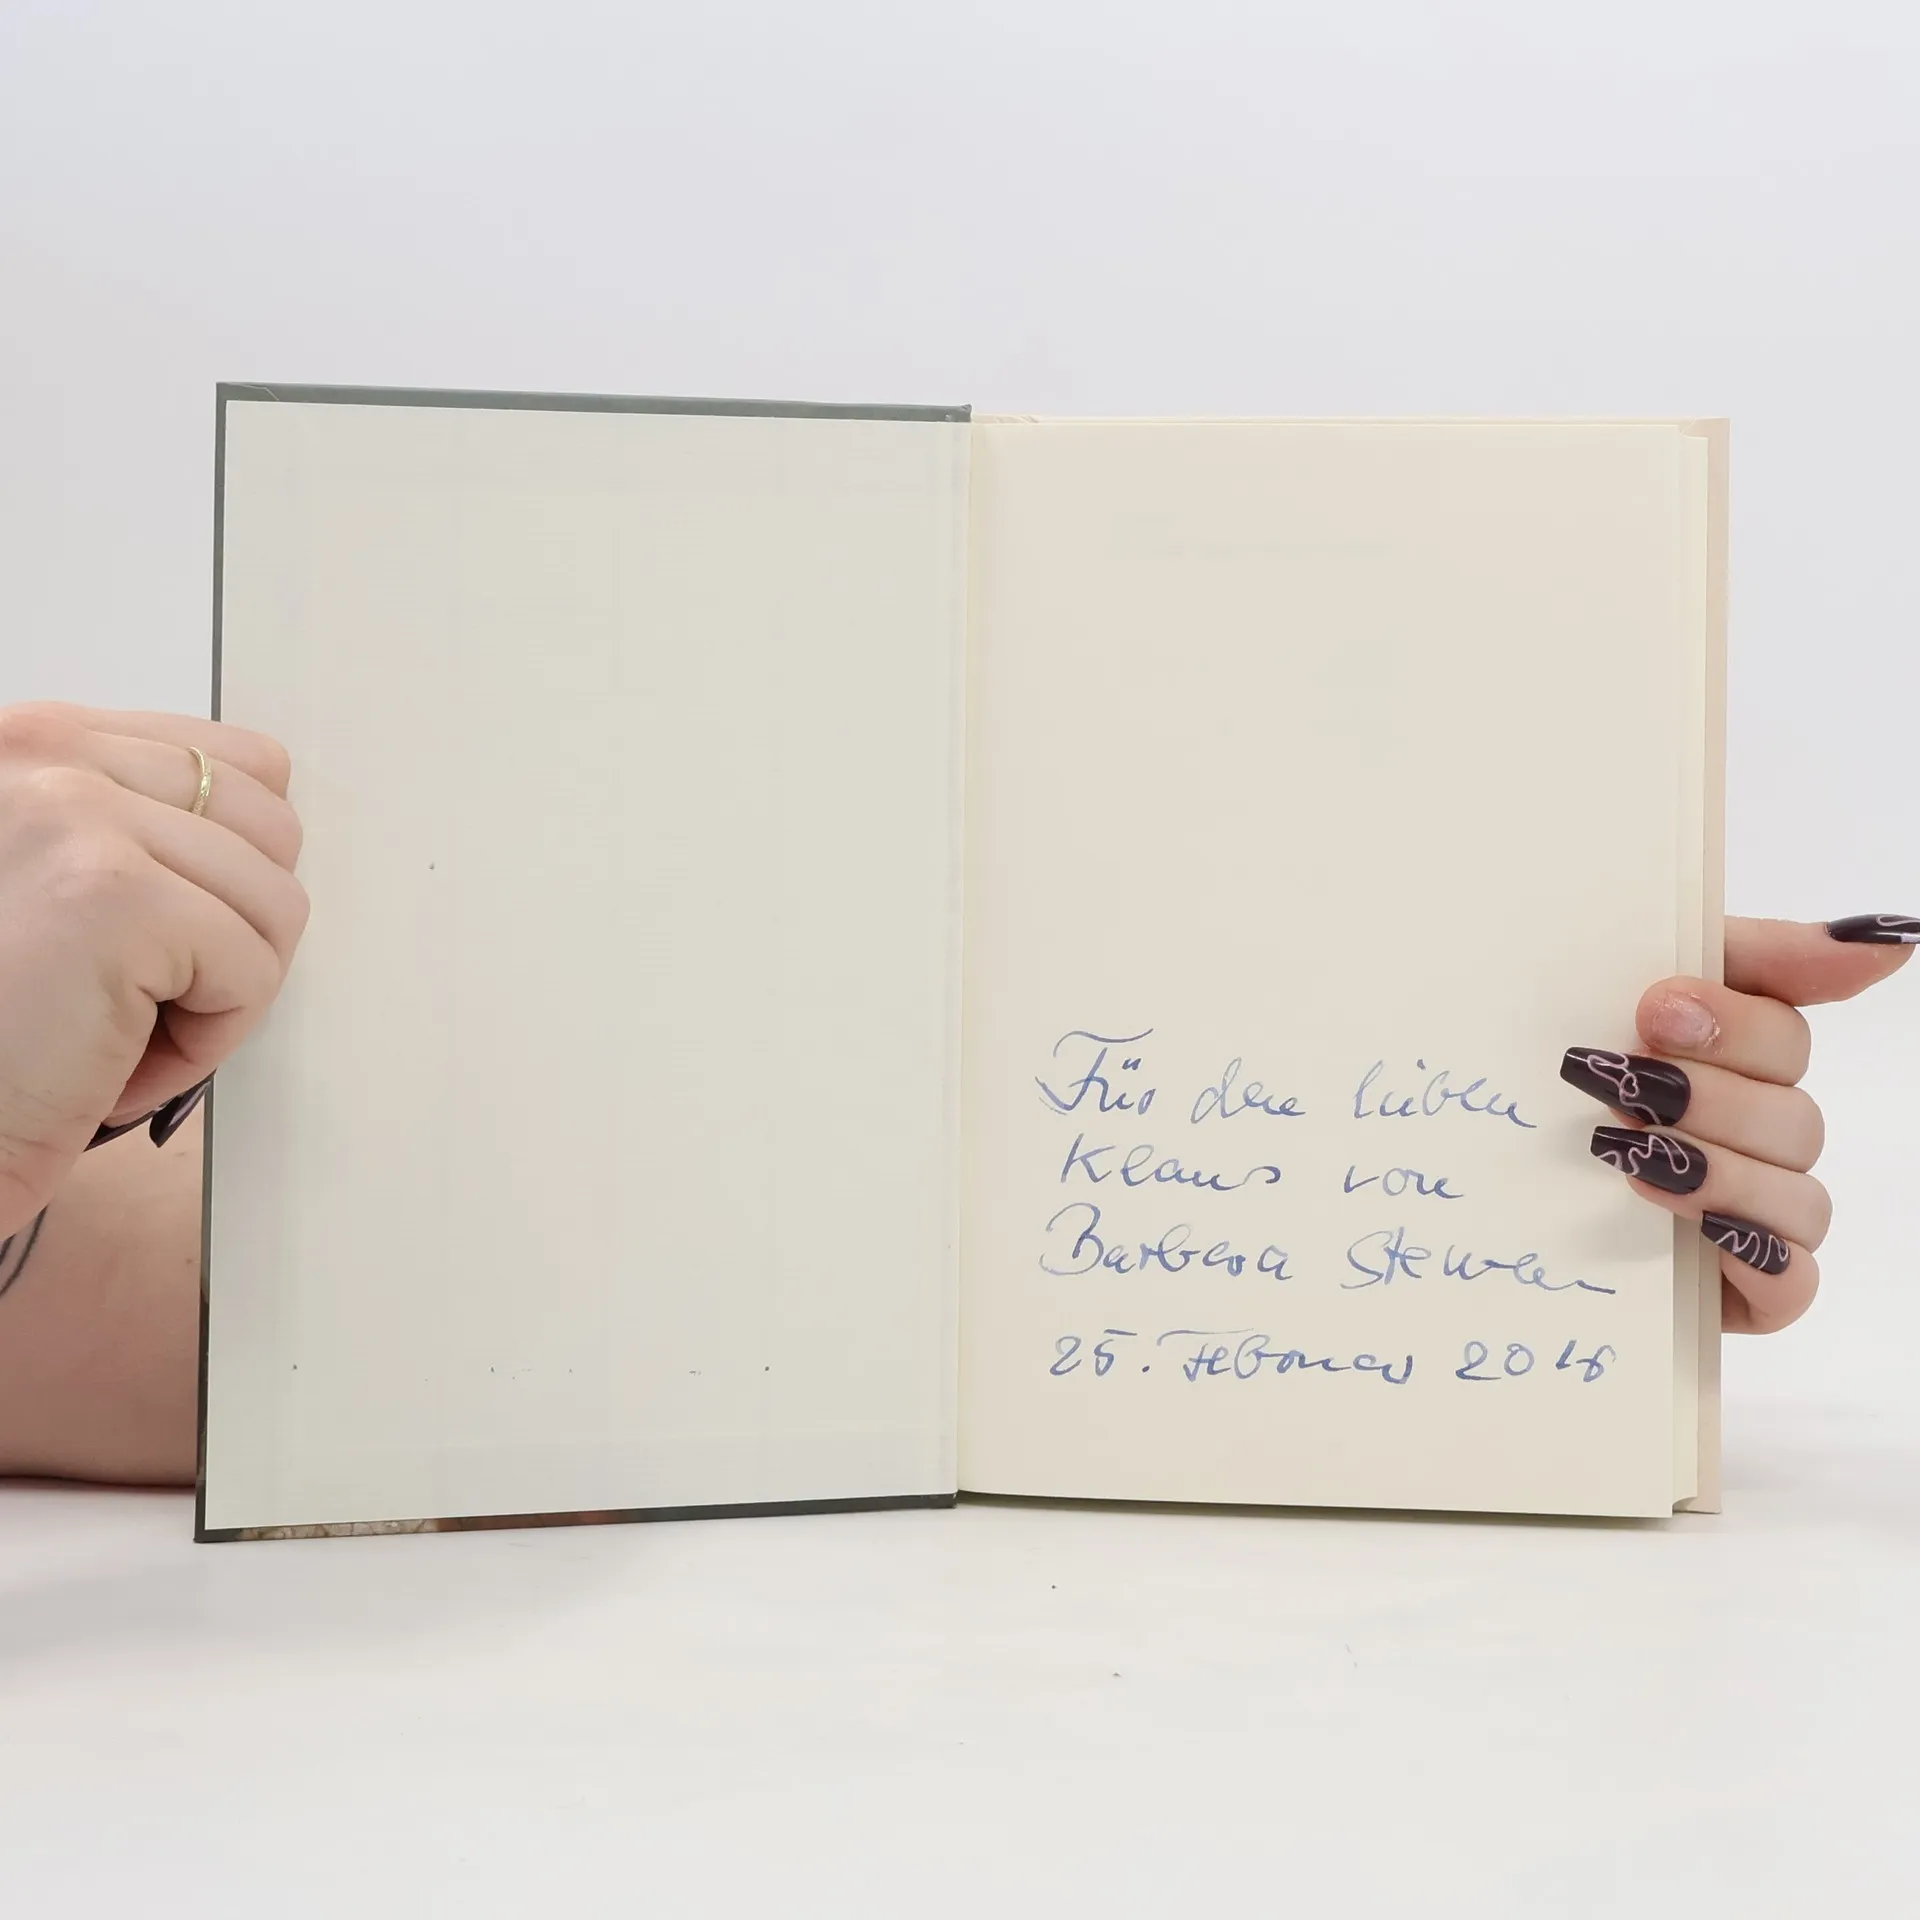 Für den lieben
Klaus von
Barbara
25. Februar 2016